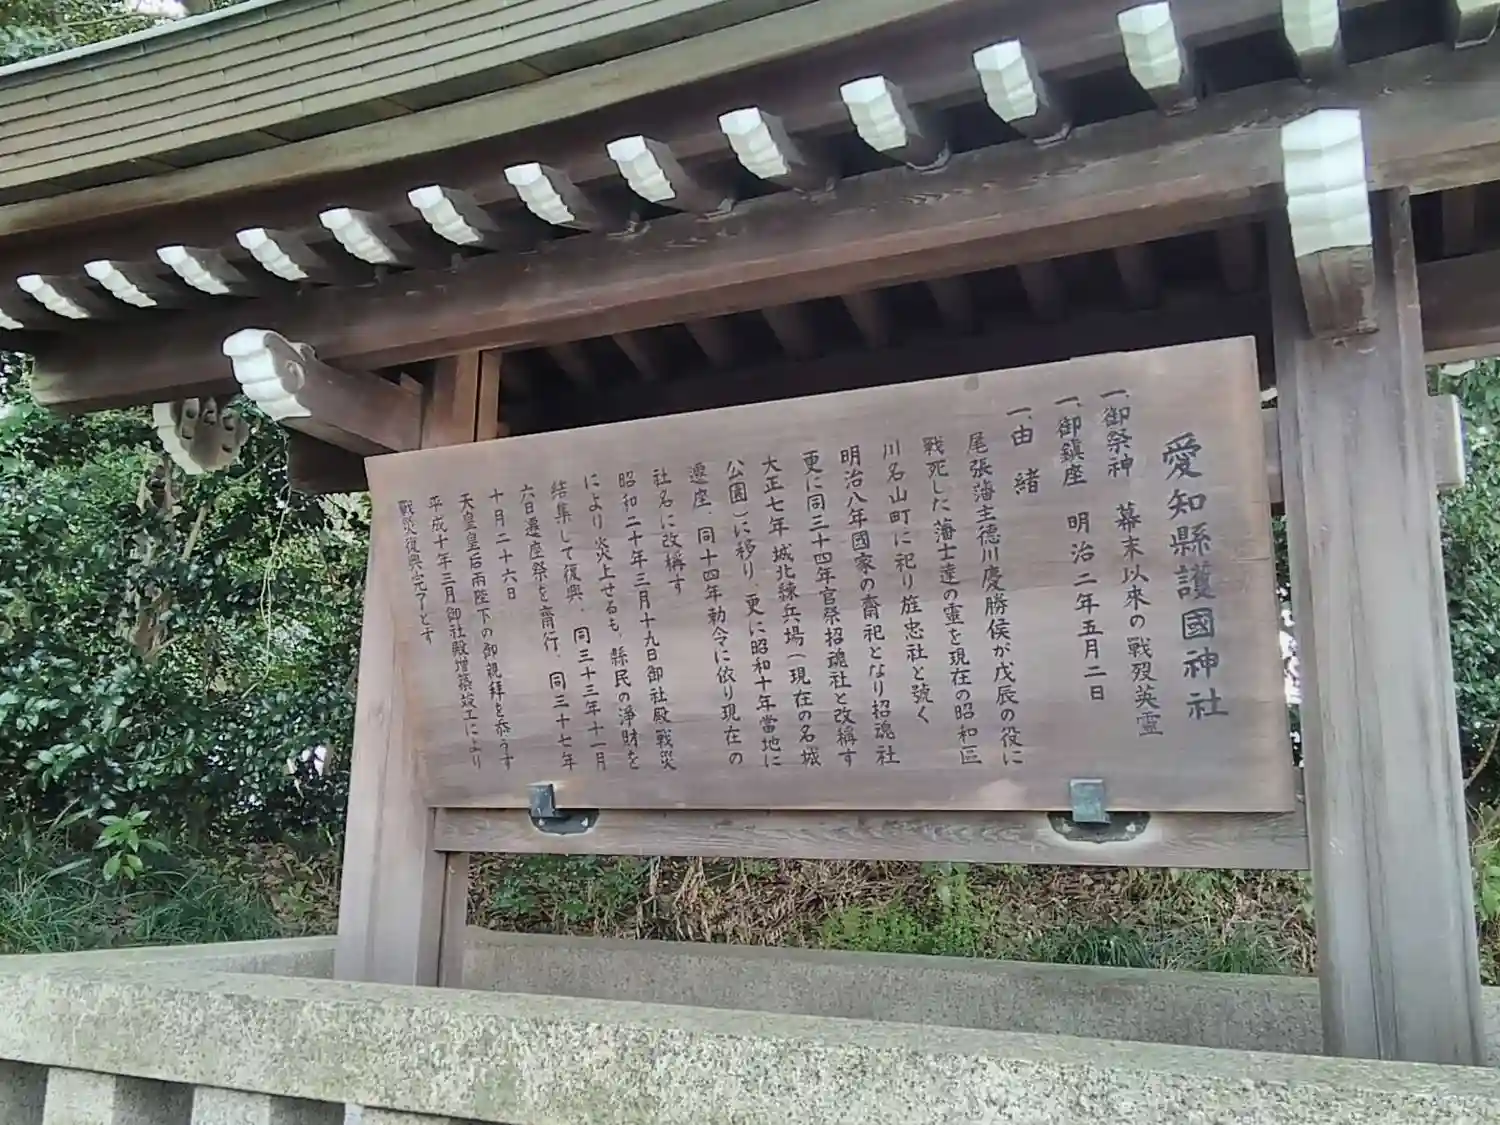 愛知縣護國神社
一、御祭神　幕末以来の戦歿英霊
一、御鎮座　明治二年五月二日
一、由　緒
尾張藩主徳川慶勝侯が戊辰の役に
戦死した藩士達の霊を現在の昭和区
川名山町に祀り旌忠社と號く
明治八年國家の齋祀となり招魂社
更に同三十四年官祭招魂社と改稱す
大正七年城北練兵場（現在の名城
公園）に移り、更に昭和十年當地に
遷座、同十四年勅令に依り現在の
社名に改稱す
昭和二十年三月十九日御社殿戦災
により炎上せるも、縣民の淨財を
結集して復興、同三十三年十一月
六日遷座祭を齋行、同三十七年
十月二十六日
天皇皇后両陛下の御親拜を忝うす
平成十年三月御社殿増築竣工により
戰災復興完了とす